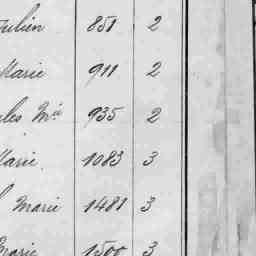 Julien 851 2
Marie 911 2
les Mie 935 2
Marie. 1083 3
Marie 1481 3
Marie 1500 3